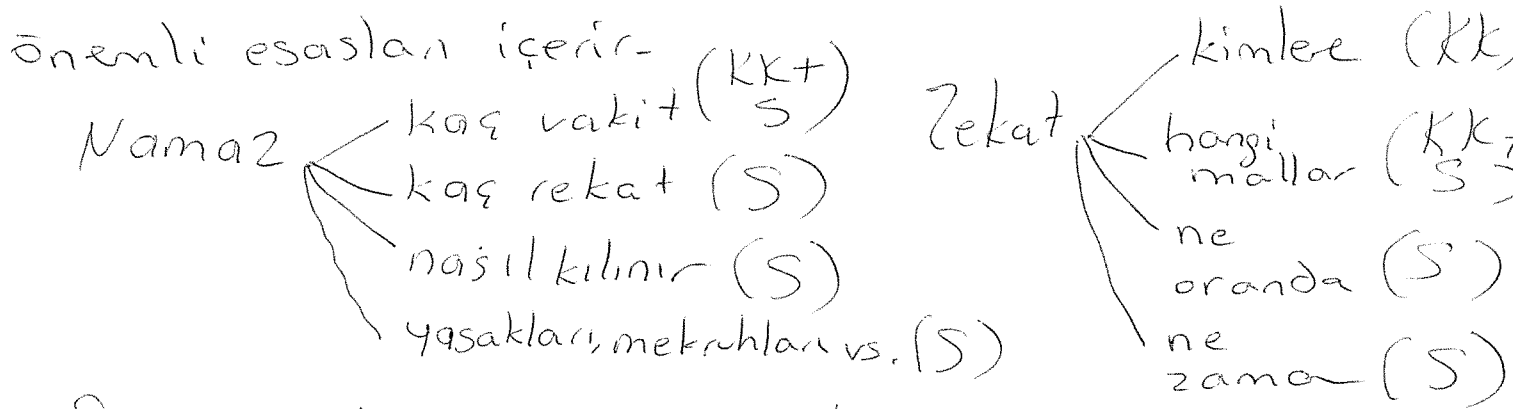 önemli esasları içerir-
Namaz
kaç vakit (KK+
S)
kaç rekat (S)
nasıl kılınır (S)
yasakları, mekruhları vs. (S)
Zekat
kimlere (KK,
hangi
mallar (KK+
S)
ne
oranda (S)
ne
zaman (S)